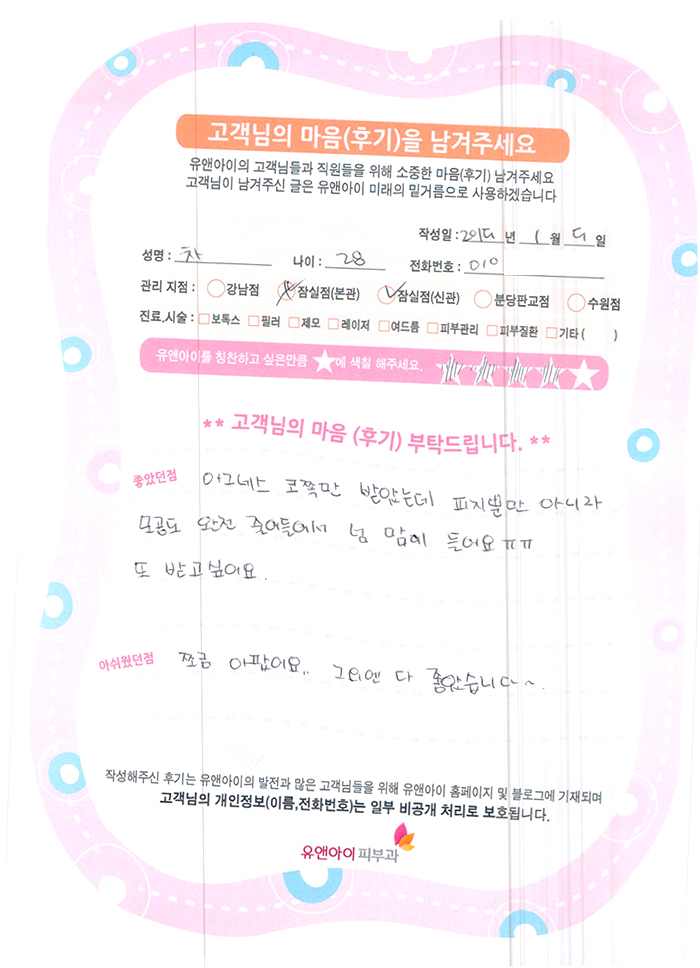 고객님의 마음(후기)을 남겨주세요
유앤아이의 고객님들과 직원들을 위해 소중한 마음(후기) 남겨주세요
고객님이 남겨주신 글은 유앤아이 미래의 밑거름으로 사용하겠습니다
작성일 : 년 1 월 일
성명 : 차 나이 : 28 전화번호 : 010
관리 지점 : 강남점 잠실점(본관) 잠실점(신관) 분당판교점 수원점
진료,시술 : 보톡스 필러 제모 레이저 여드름 피부관리 피부질환 기타 ( )
유앤아이를 칭찬하고 싶은만큼 ★에 색칠 해주세요.
** 고객님의 마음 (후기) 부탁드립니다. **
좋았던점 아그네스 코쪽만 받았는데 피지뿐만 아니라
모공도 완전 줄어들어서 넘 맘에 들어요 ㅠㅠ
또 받고싶어요.
아쉬웠던점 쪼금 아팠어요.. 그외엔 다 좋았습니다~.
작성해주신 후기는 유앤아이의 발전과 많은 고객님들을 위해 유앤아이 홈페이지 및 블로그에 기재되며
고객님의 개인정보(이름,전화번호)는 일부 비공개 처리로 보호됩니다.
유앤아이 피부과